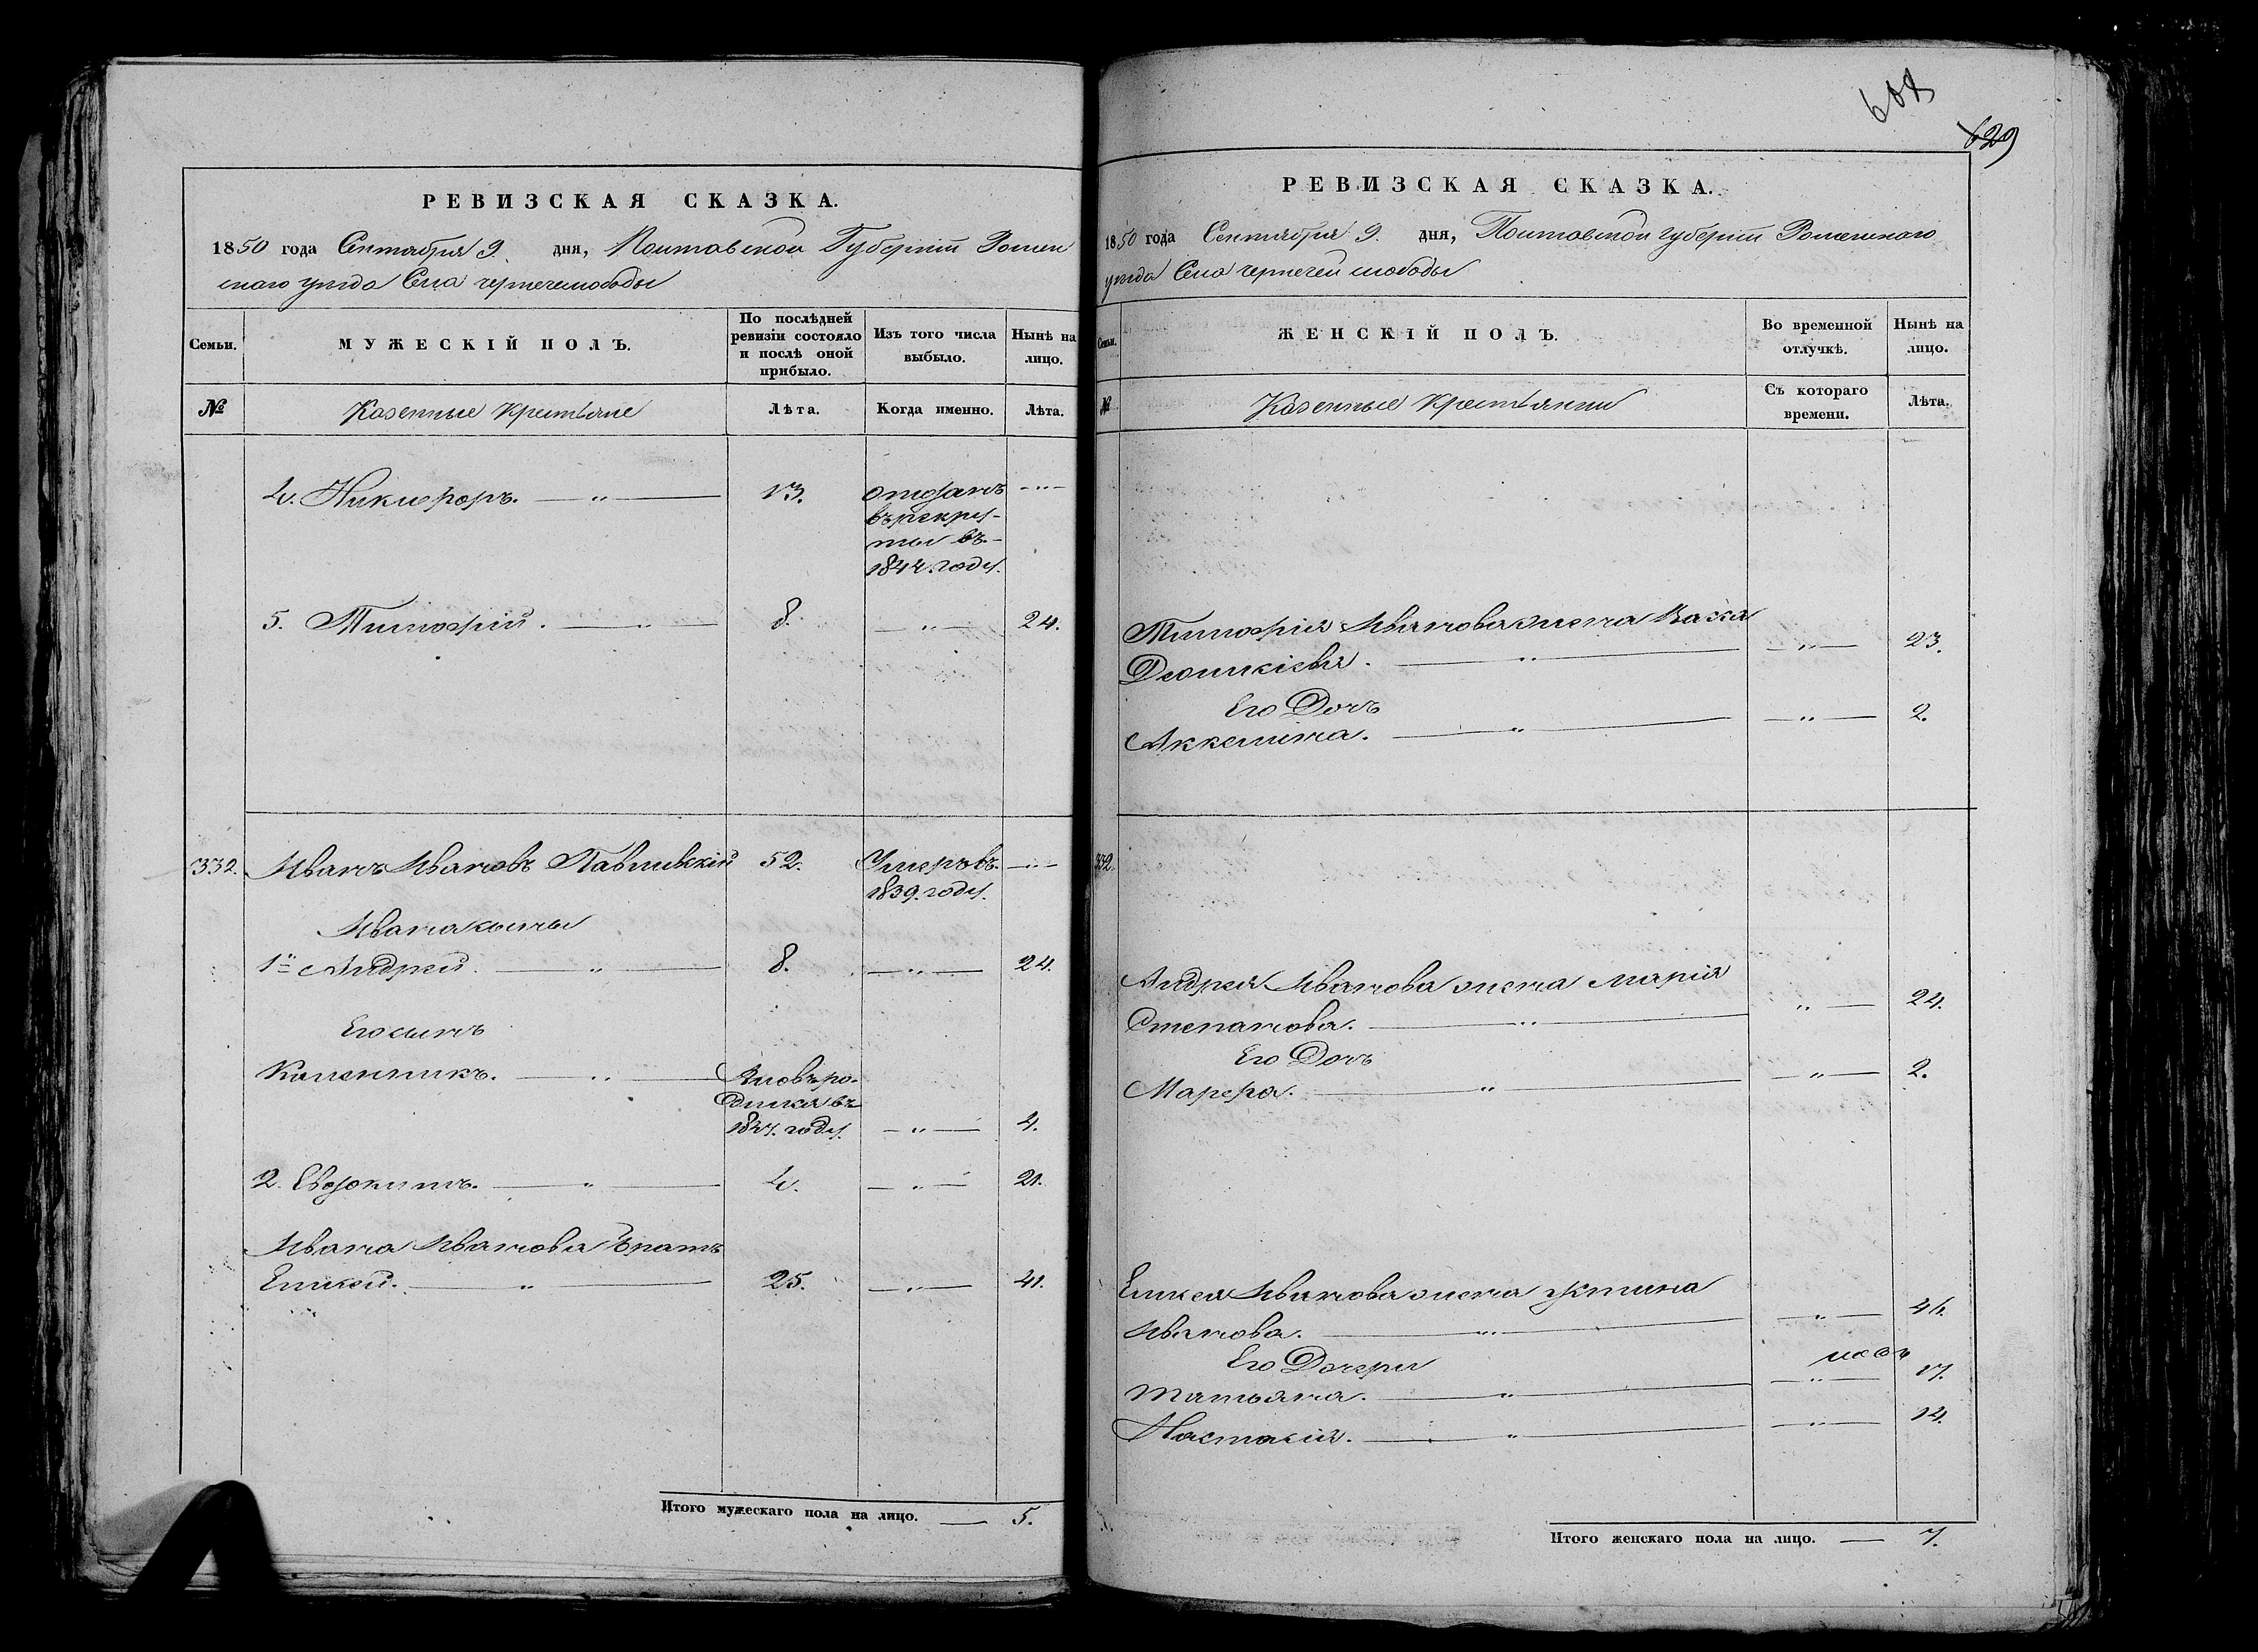 608
629
РЕВИЗСКАЯ СКАЗКА.
1850 года Сентября 9. дня, Полтавской Губерніи Ромен
скаго уѣзда Села чернечеслободы
Семьи.
МУЖЕСКІЙ ПОЛЪ.
По послѣдней
ревизіи состояло
и послѣ оной
прибыло.
Изъ того числа
выбыло.
Нынѣ на
лицо.
№
Казенные Крестьяне
Лѣта.
Когда именно.
Лѣта.
4. Никифоръ. — „ — 13. отданъ
въ рекру-
ты въ
184 году.
5. Тимофій. — „ — 8. — „ — 24.
332. Иванъ Ивановъ Павливскій 52. Умеръ въ
1839. году.
Ивана сыны
1й Андрей. — „ — 8. — „ — 24.
Его сынъ
Каленникъ. — „ — Вновь ро-
дился въ
1847. году. — „ — 4.
2. Евдокимъ. — „ — 4. — „ — 21.
Ивана Иванова братъ
Елисей. — „ — 25. — „ — 41.
Итого мужескаго пола на лицо. — 5.
РЕВИЗСКАЯ СКАЗКА.
1850 года Сентября 9. дня, Полтавской губерніи Роменскаго
уѣзда Села чернечей слободы
Семьи.
ЖЕНСКІЙ ПОЛЪ.
Во временной
отлучкѣ.
Нынѣ на
лицо.
№
Казенные Крестьянки
Съ котораго
времени.
Лѣта.
Тимофія Иванова жена Васса
— „ — 23.
Его Дочь
— „ — 2.
332.
Андрея Иванова жена Марія
Степанова. — „ — 24.
Его Дочь
Марфа. — „ — 2.
Елисея Иванова жена Устина
Иванова. — „ — 46.
Его Дочери
Татьяна. — „ — 17.
Настасія. — „ — 14.
Итого женскаго пола на лицо. — 7.